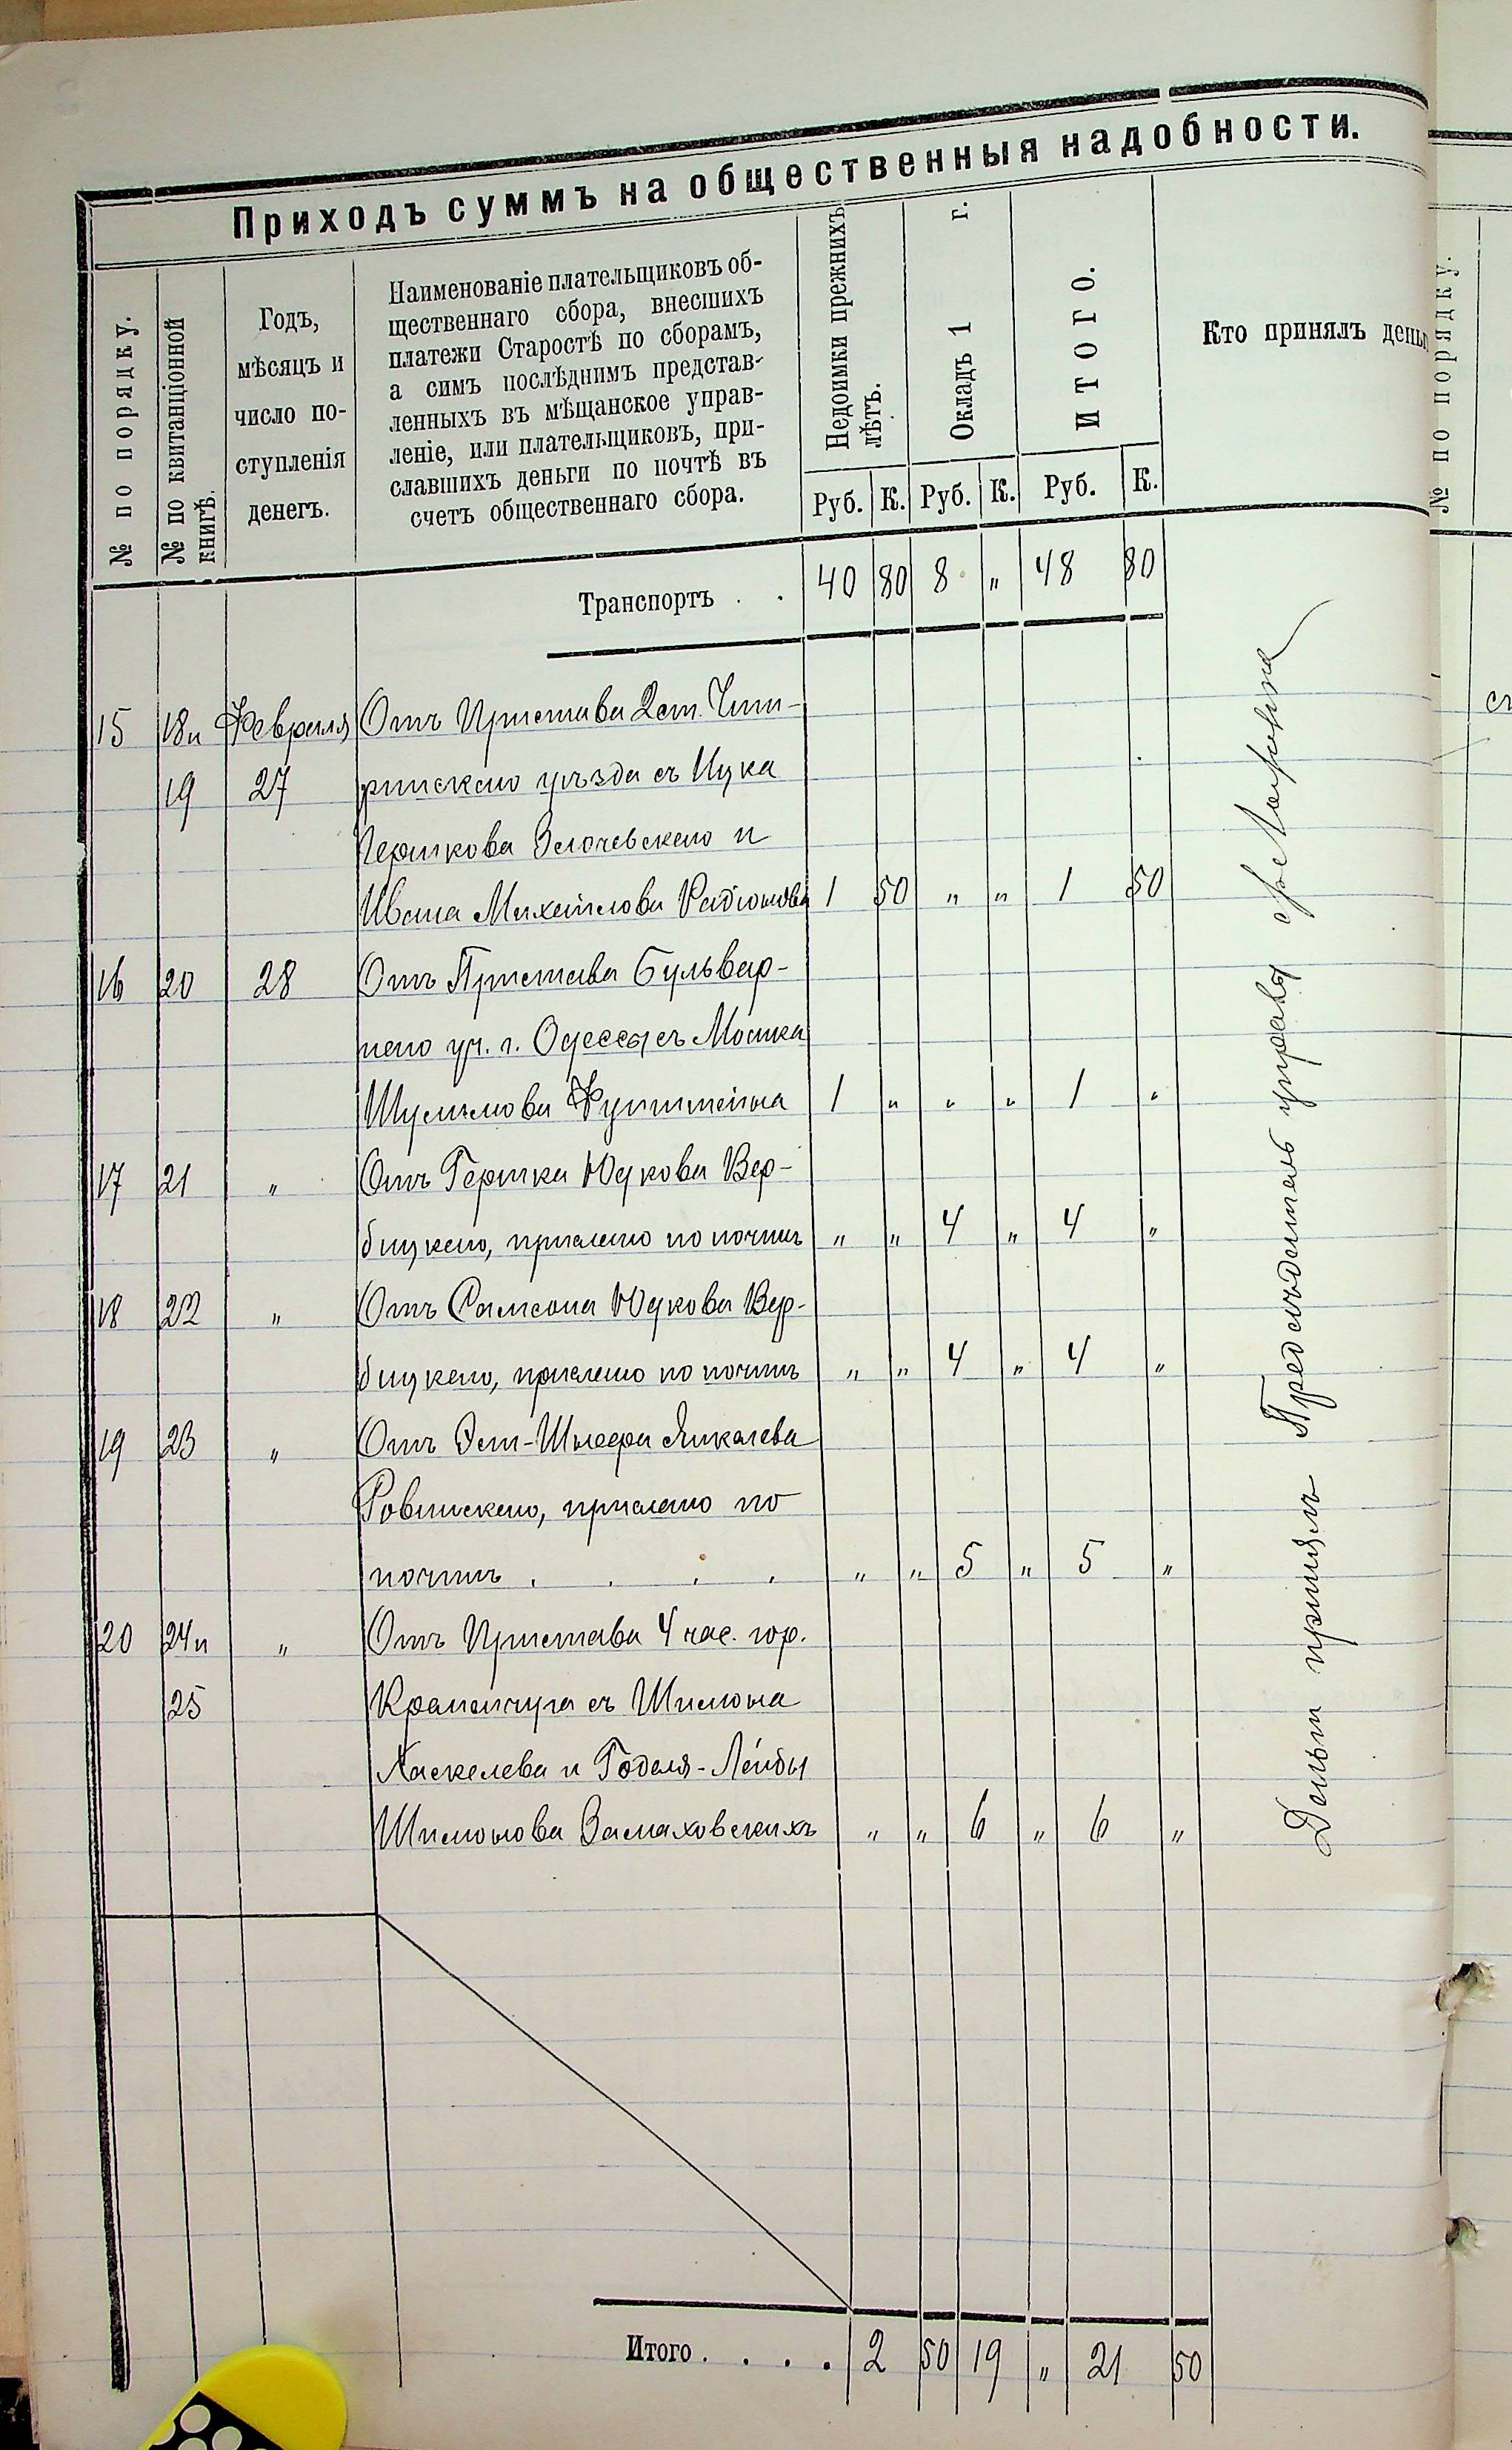 Приходъ суммъ на общественныя надобности.
№ по порядку.
№ по квитанціонной
книгѣ.
Годъ,
мѣсяцъ и
число по-
ступленія
денегъ.
Наименованіе плательщиковъ об-
щественнаго сбора, внесшихъ
платежи Старостѣ по сборамъ,
а симъ послѣднимъ представ-
ленныхъ въ мѣщанское управ-
леніе, или плательщиковъ, при-
славшихъ деньги по почтѣ въ
счетъ общественнаго сбора.
Недоимки прежнихъ
лѣтъ.
Окладъ 1 г.
ИТОГО.
Кто принялъ деньг
Руб. К. Руб. К. Руб. К.
Транспортъ . . 40 80 8 „ 48 80
15 18 и Февраля Отъ Пристава 2 ст. Чиги-
19 27 ринскаго уѣзда съ Ицка
Гершкова Золочевскаго и
Ивана Михайлова Радіонова 1 50 „ „ 1 50
16 20 28 Отъ Пристава Бульвар-
наго уч. г. Одессы съ Мошка
Шулимова 1 „ „ „ 1 „
17 21 „ Отъ Гершка Юдкова Вер-
бицкаго, прислано по почтѣ „ „ 4 „ 4 „
18 22 „ Отъ Самсона Юдкова Вер-
бицкаго, прислано по почтѣ „ „ 4 „ 4 „
19 23 „ Отъ Янкелева
Ровинскаго, прислано по
почтѣ . . . . „ „ 5 „ 5 „
20 24 и „ Отъ Пристава 4 час. гор.
25 Кременчуга съ Шимона
Хаскелева и Годеля-Лейбы
Шимонова Замаховскихъ „ „ 6 „ 6 „
Деньги принялъ Предсѣдатель управы
Итого . . . . 2 50 19 „ 21 50
№ по порядку.